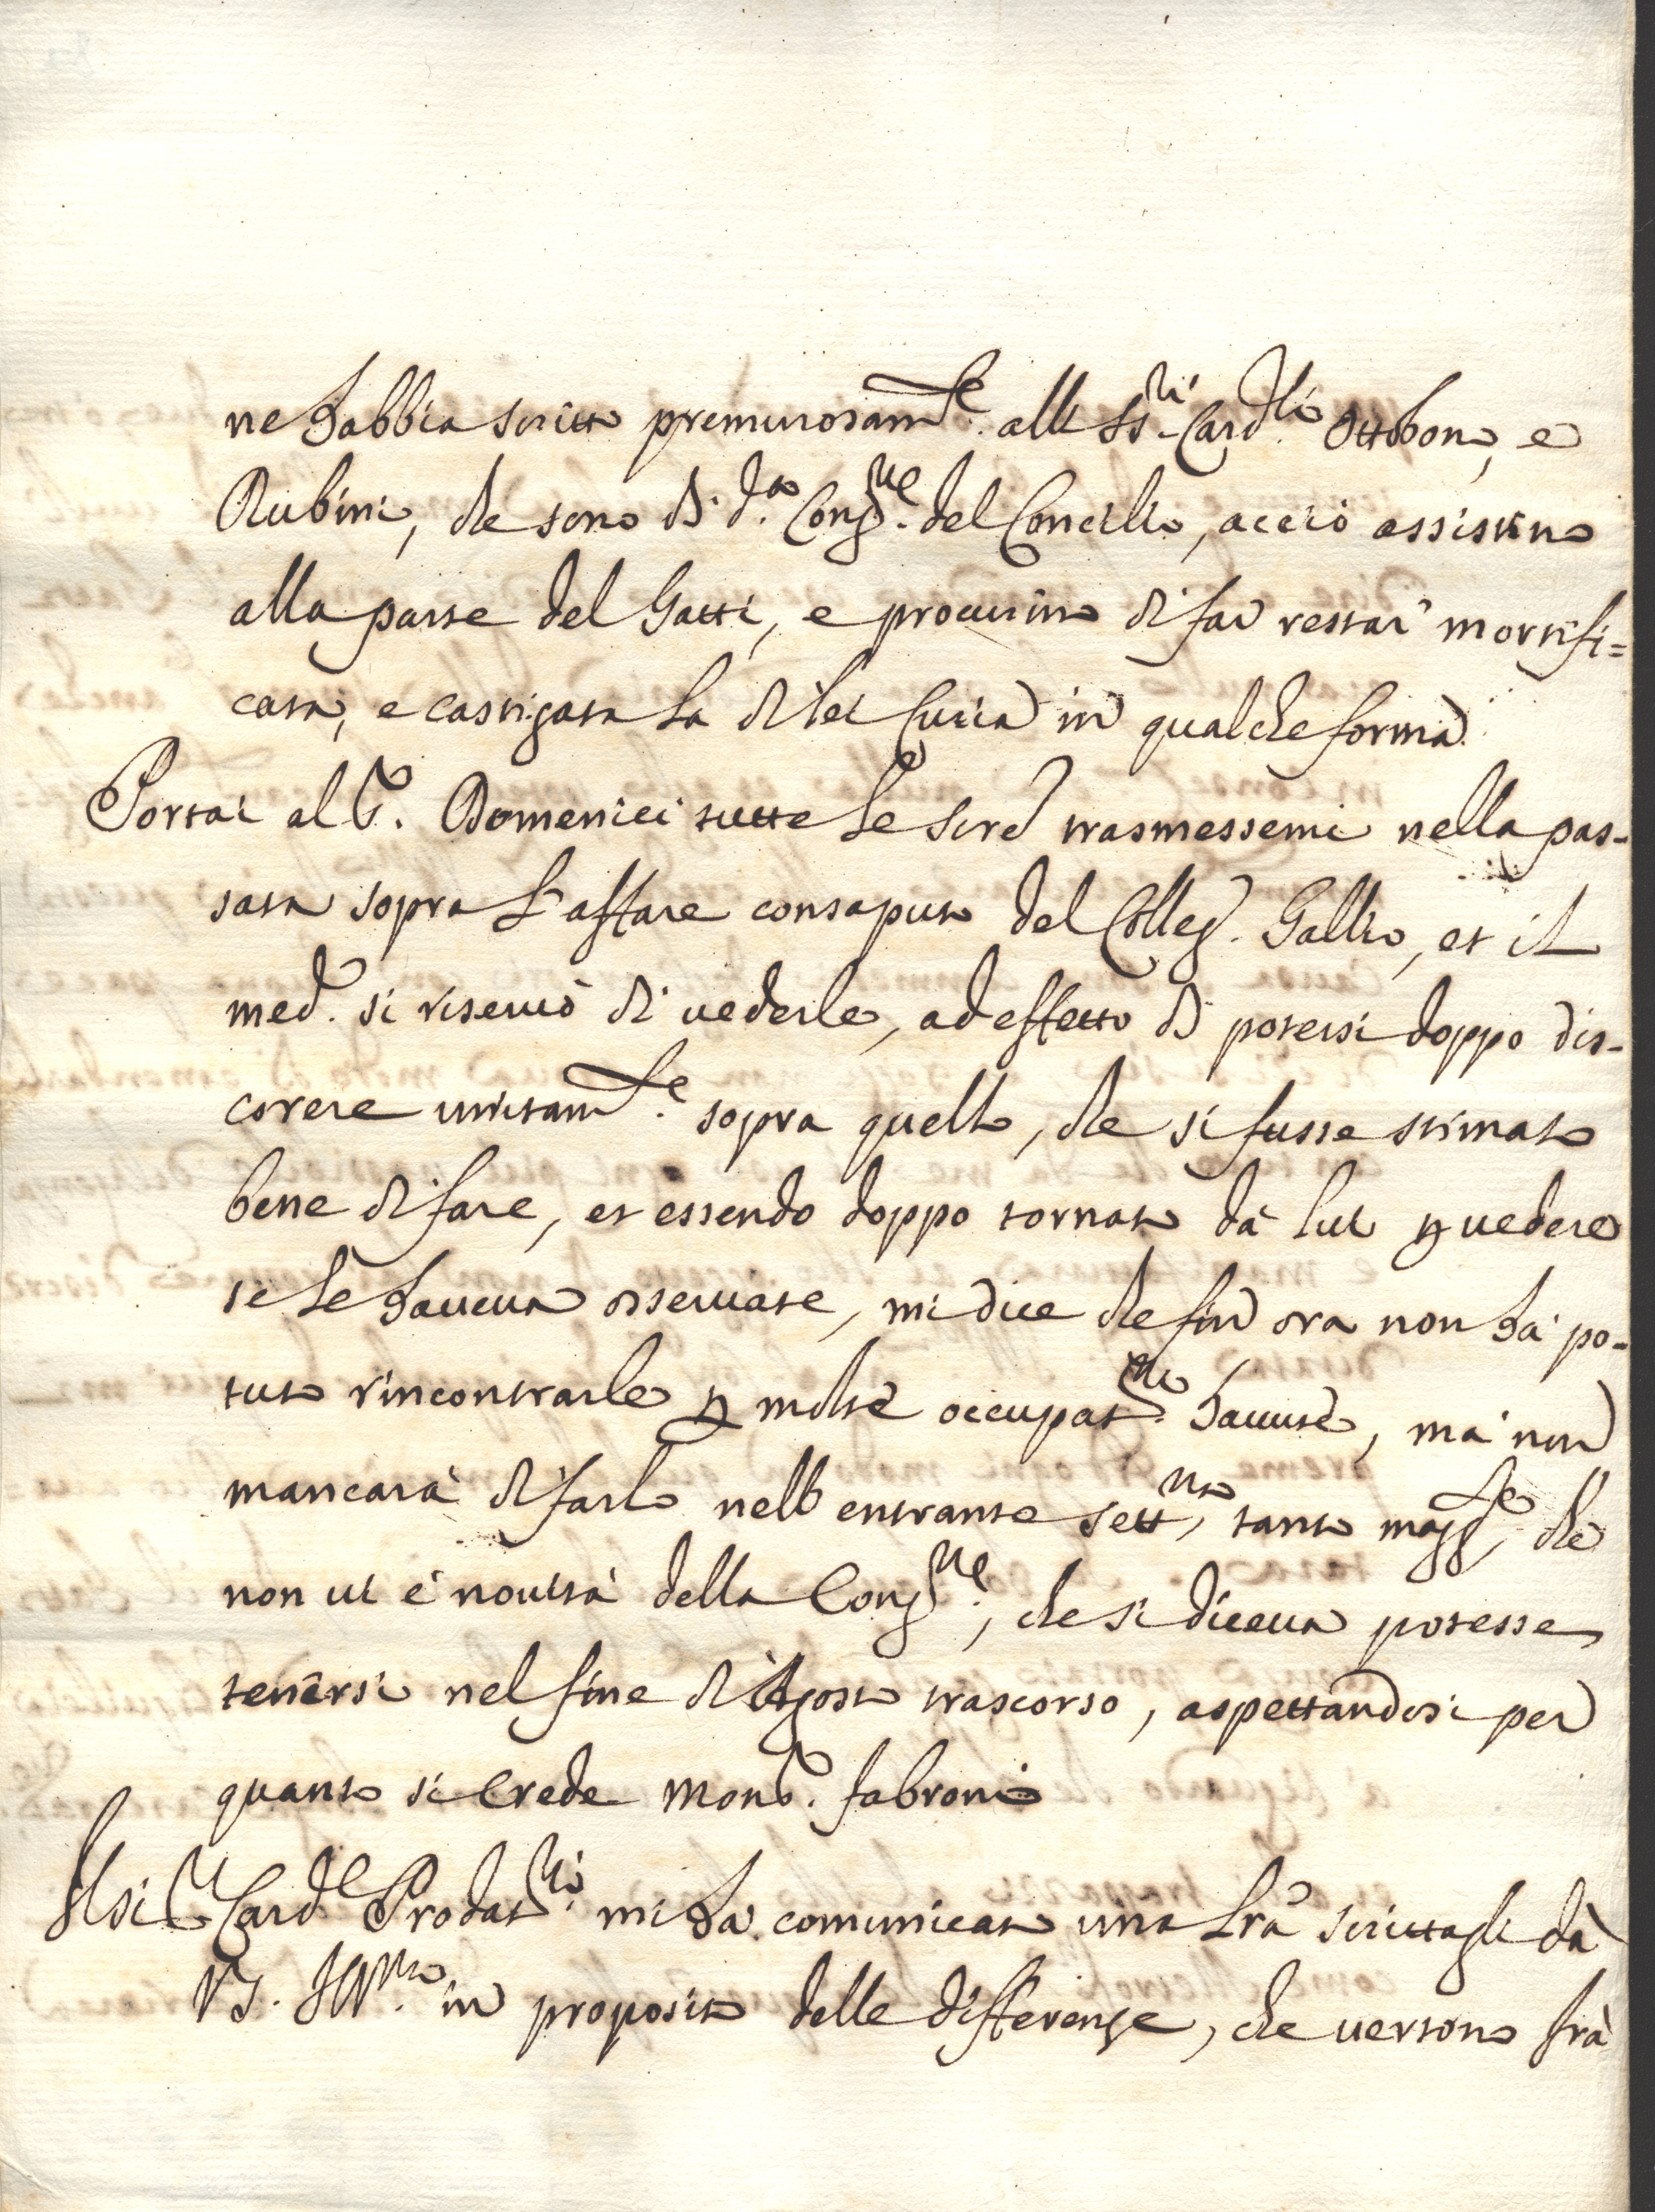 ne habbia scritto premurosam.te alli SS.ri Card.li Ottoboni, e
Rubini, che sono di d.a Cong.ne del Concilio, acciò assistino
alla parte del Gatti, e procurino di far restar mortifi=
cata, e castigata la di lei Curia in qualche forma.
Portai al S.r Domenici tutte le scre trasmessemi nella pas-
sata sopra l'affare consaputo del Colleg. Gallio, et il
med.o si riservò di vederle, ad effetto di potersi doppo dis-
correre unitam.te sopra quello, che si fusse stimato
bene di fare, et essendo doppo tornato dà lui p vedere
se le haveva osservate, mi dice che fin ora non hà po-
tuto rincontrarle p molte occupat.ni havute, mà non
mancarà di farlo nell entrante sett.na, tanto magg.te, che
non vi è novità della Cong.ne, che si diceva potesse
tenersi nel fine di Agosto trascorso, aspettandosi per
quanto si crede Mons.r Fabroni
Il Sig.r Card.l Prodat.rio mi hà comunicato una lra scrittagli dà
VS. Ill.ma in proposito delle differenze, che vertono frà